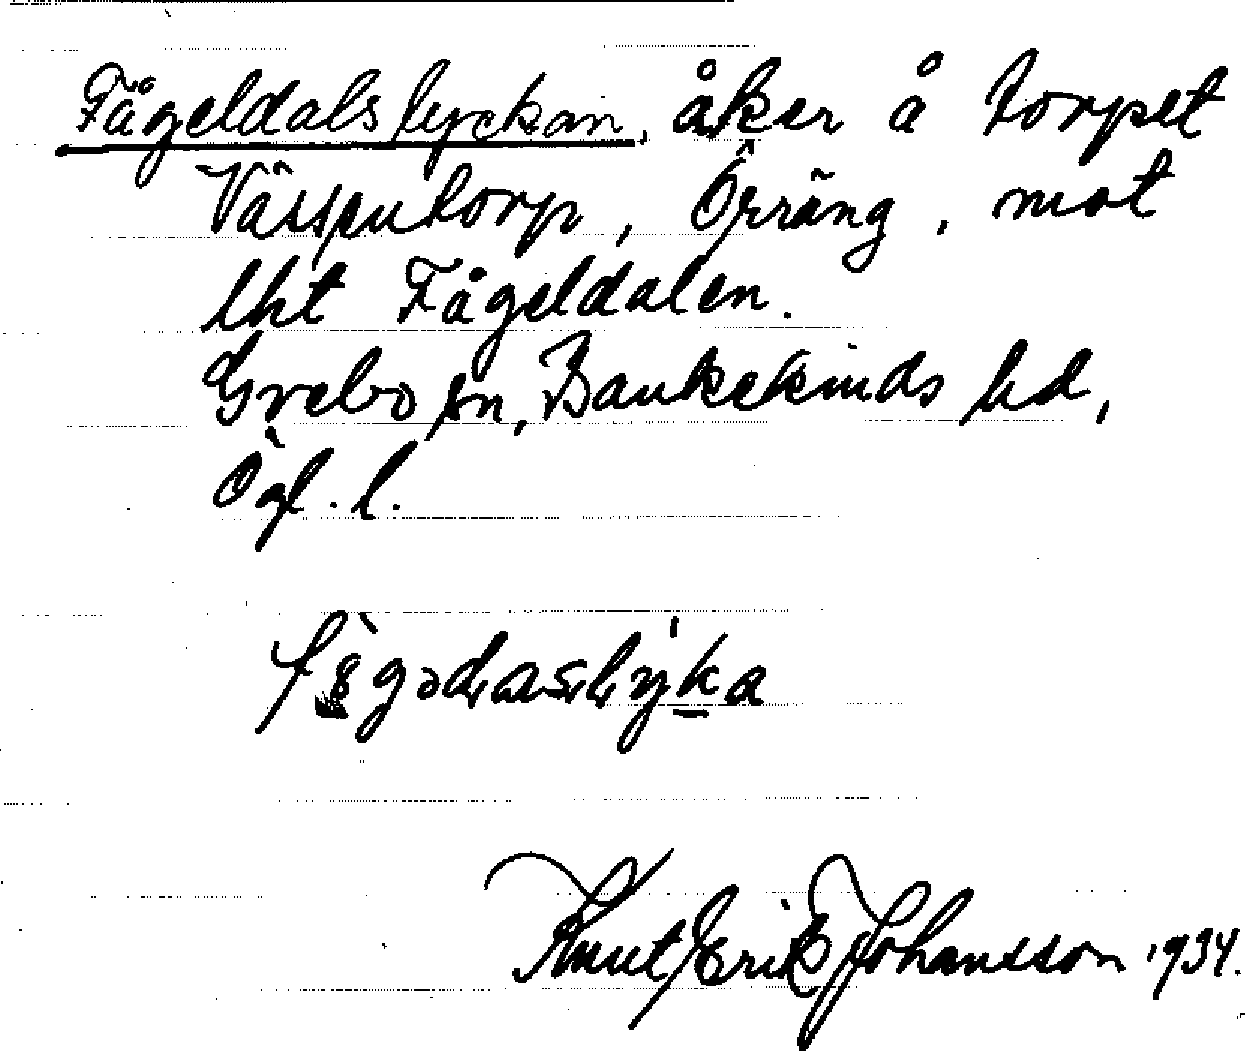 Fågeldalslyckan, åker å torpet
Vässentorp, Örräng, mot
lht Fågeldalen.
Grebo sn, Bankekinds hd,
Ögl. l.
Knut Erik Johansson 1934.